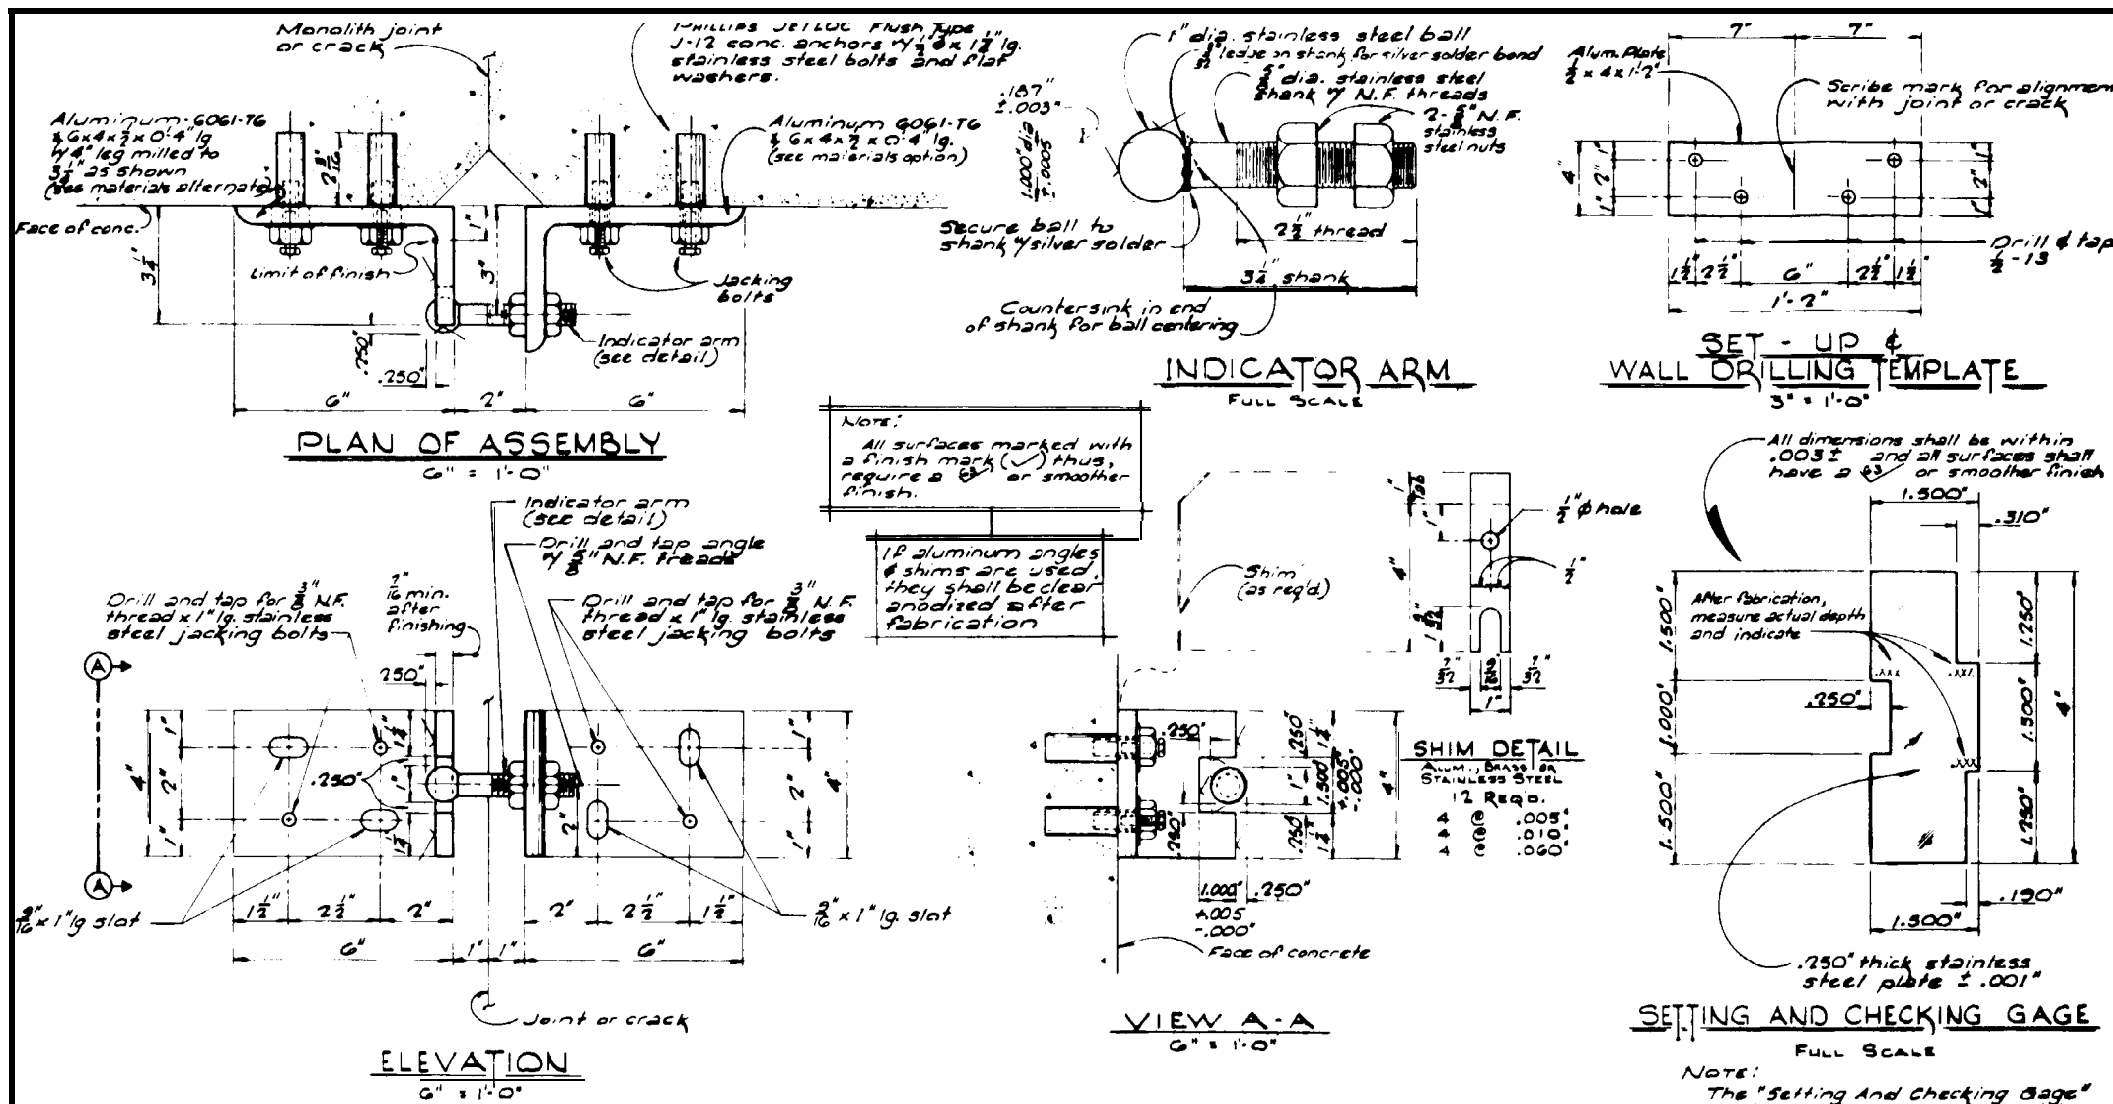 Monolith joint
or crack
PHILLIPS JETLOC Flush Type
J-12 conc. anchors w/ ½"ϕ x 1½" lg.
stainless steel bolts and flat
washers.
Aluminum-6061-T6
∠ 6x4x½x0'-4" lg
w/ 4" leg milled to
3¼" as shown
(see materials alternate)
Aluminum 6061-T6
∠ 6x4x½x0'-4" lg.
(see materials option)
2 9/16"
Face of conc.
1"
3¼"
3"
Limit of finish
Jacking
bolts
Indicator arm
(see detail)
.250"
.250"
6"
2"
6"
PLAN OF ASSEMBLY
6" = 1'-0"
1" dia. stainless steel ball
1/32" ledge on shank for silver solder bond
⅝" dia. stainless steel
shank w/ N.F. threads
2-⅝" N.F.
stainless
steel nuts
.187"
±.003"
1.000" dia
±.0005
Secure ball to
shank w/ silver solder
2½" thread
3¼" shank
Countersink in end
of shank for ball centering
INDICATOR ARM
FULL SCALE
7"
7"
Alum. Plate
½ x 4 x 1'-2"
Scribe mark for alignment
with joint or crack
4"
1" 2" 1"
1" 2" 1"
Drill & tap
½-13
1½" 2½" 6" 2½" 1½"
1'-2"
SET-UP &
WALL DRILLING TEMPLATE
3" = 1'-0"
NOTE:
All surfaces marked with
a finish mark (✓) thus,
require a 63 or smoother
finish.
If aluminum angles
& shims are used,
they shall be clear
anodized after
fabrication
Indicator arm
(see detail)
Drill and tap angle
w/ ⅝" N.F. treads
Drill and tap for ⅜" N.F.
thread x 1" lg. stainless
steel jacking bolts
7/16" min.
after
finishing
Drill and tap for ⅜" N.F.
thread x 1" lg. stainless
steel jacking bolts
A
A
.250"
4"
1" 2" 1"
1½"
.250"
1"
1½"
2"
1" 2" 1"
4"
9/16" x 1" lg slot
1½" 2½" 2"
2" 2½" 1½"
9/16" x 1" lg. slot
6" 1" 1" 6"
Joint or crack
ELEVATION
6" = 1'-0"
Shim
(as req'd.)
1" Tab
1"
4"
½"ϕ hole
½"
1 9/32"
7/32" 9/16" 7/32"
1"
SHIM DETAIL
ALUM., BRASS OR
STAINLESS STEEL
12 REQ'D.
4 @ .005"
4 @ .010"
4 @ .060"
.250"
.250" 1¼"
1" 1.500 +.005" -.000"
.250" 1¼"
.250"
4"
1.000" .250"
+.005
-.000"
Face of concrete
VIEW A-A
6" = 1'-0"
All dimensions shall be within
.003± and all surfaces shall
have a 63 or smoother finish
1.500"
.310"
After fabrication,
measure actual depth
and indicate
1.500"
1.250"
.XXX .XXX
.250"
1.000"
1.500"
4"
.XXX
1.500"
1.250"
.190"
1.500"
.250" thick stainless
steel plate ± .001"
SETTING AND CHECKING GAGE
FULL SCALE
NOTE:
The "Setting And Checking Gage"